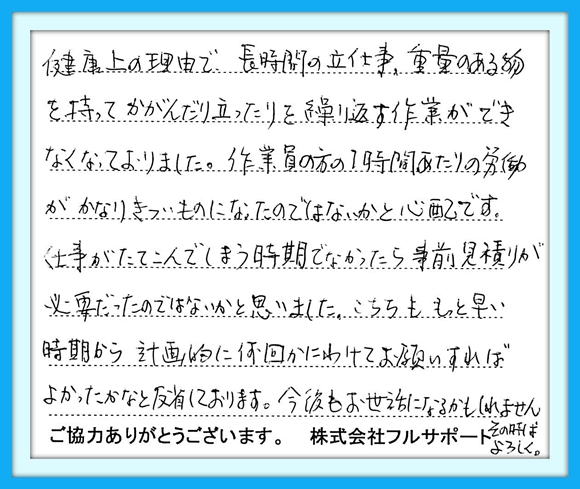 健康上の理由で、長時間の立仕事、重量のある物
を持ってかがんだり立ったりと繰り返す作業ができ
なくなっておりました。作業員の方の1時間あたりの労働
がかなりきついものになったのではないかと心配です。
仕事がたてこんでしまう時期でなかったら事前見積りが
必要だったのではないかと思いました。こちらももっと早い
時期から計画的に何回かにわけてお願いすれば
よかったかなと反省しております。今後もお世話になるかもしれません
その時は
よろしく。
ご協力ありがとうございます。 株式会社フルサポート